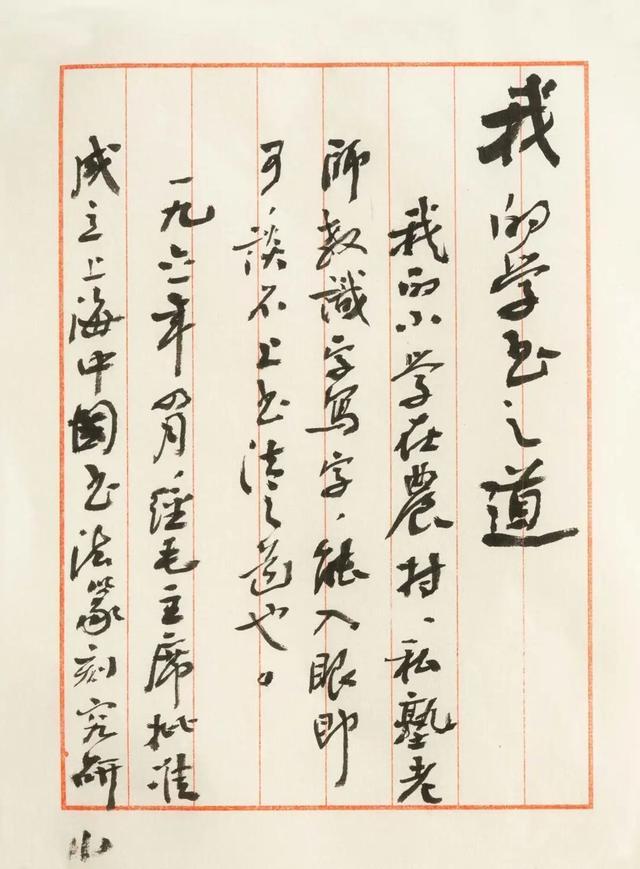 我的学书之道
我的小学在農村、私塾老
師教識字写字，能入眼即
可，談不上书法之道也。
一九六一年四月，经毛主席批准
成立上海中国书法篆刻究研